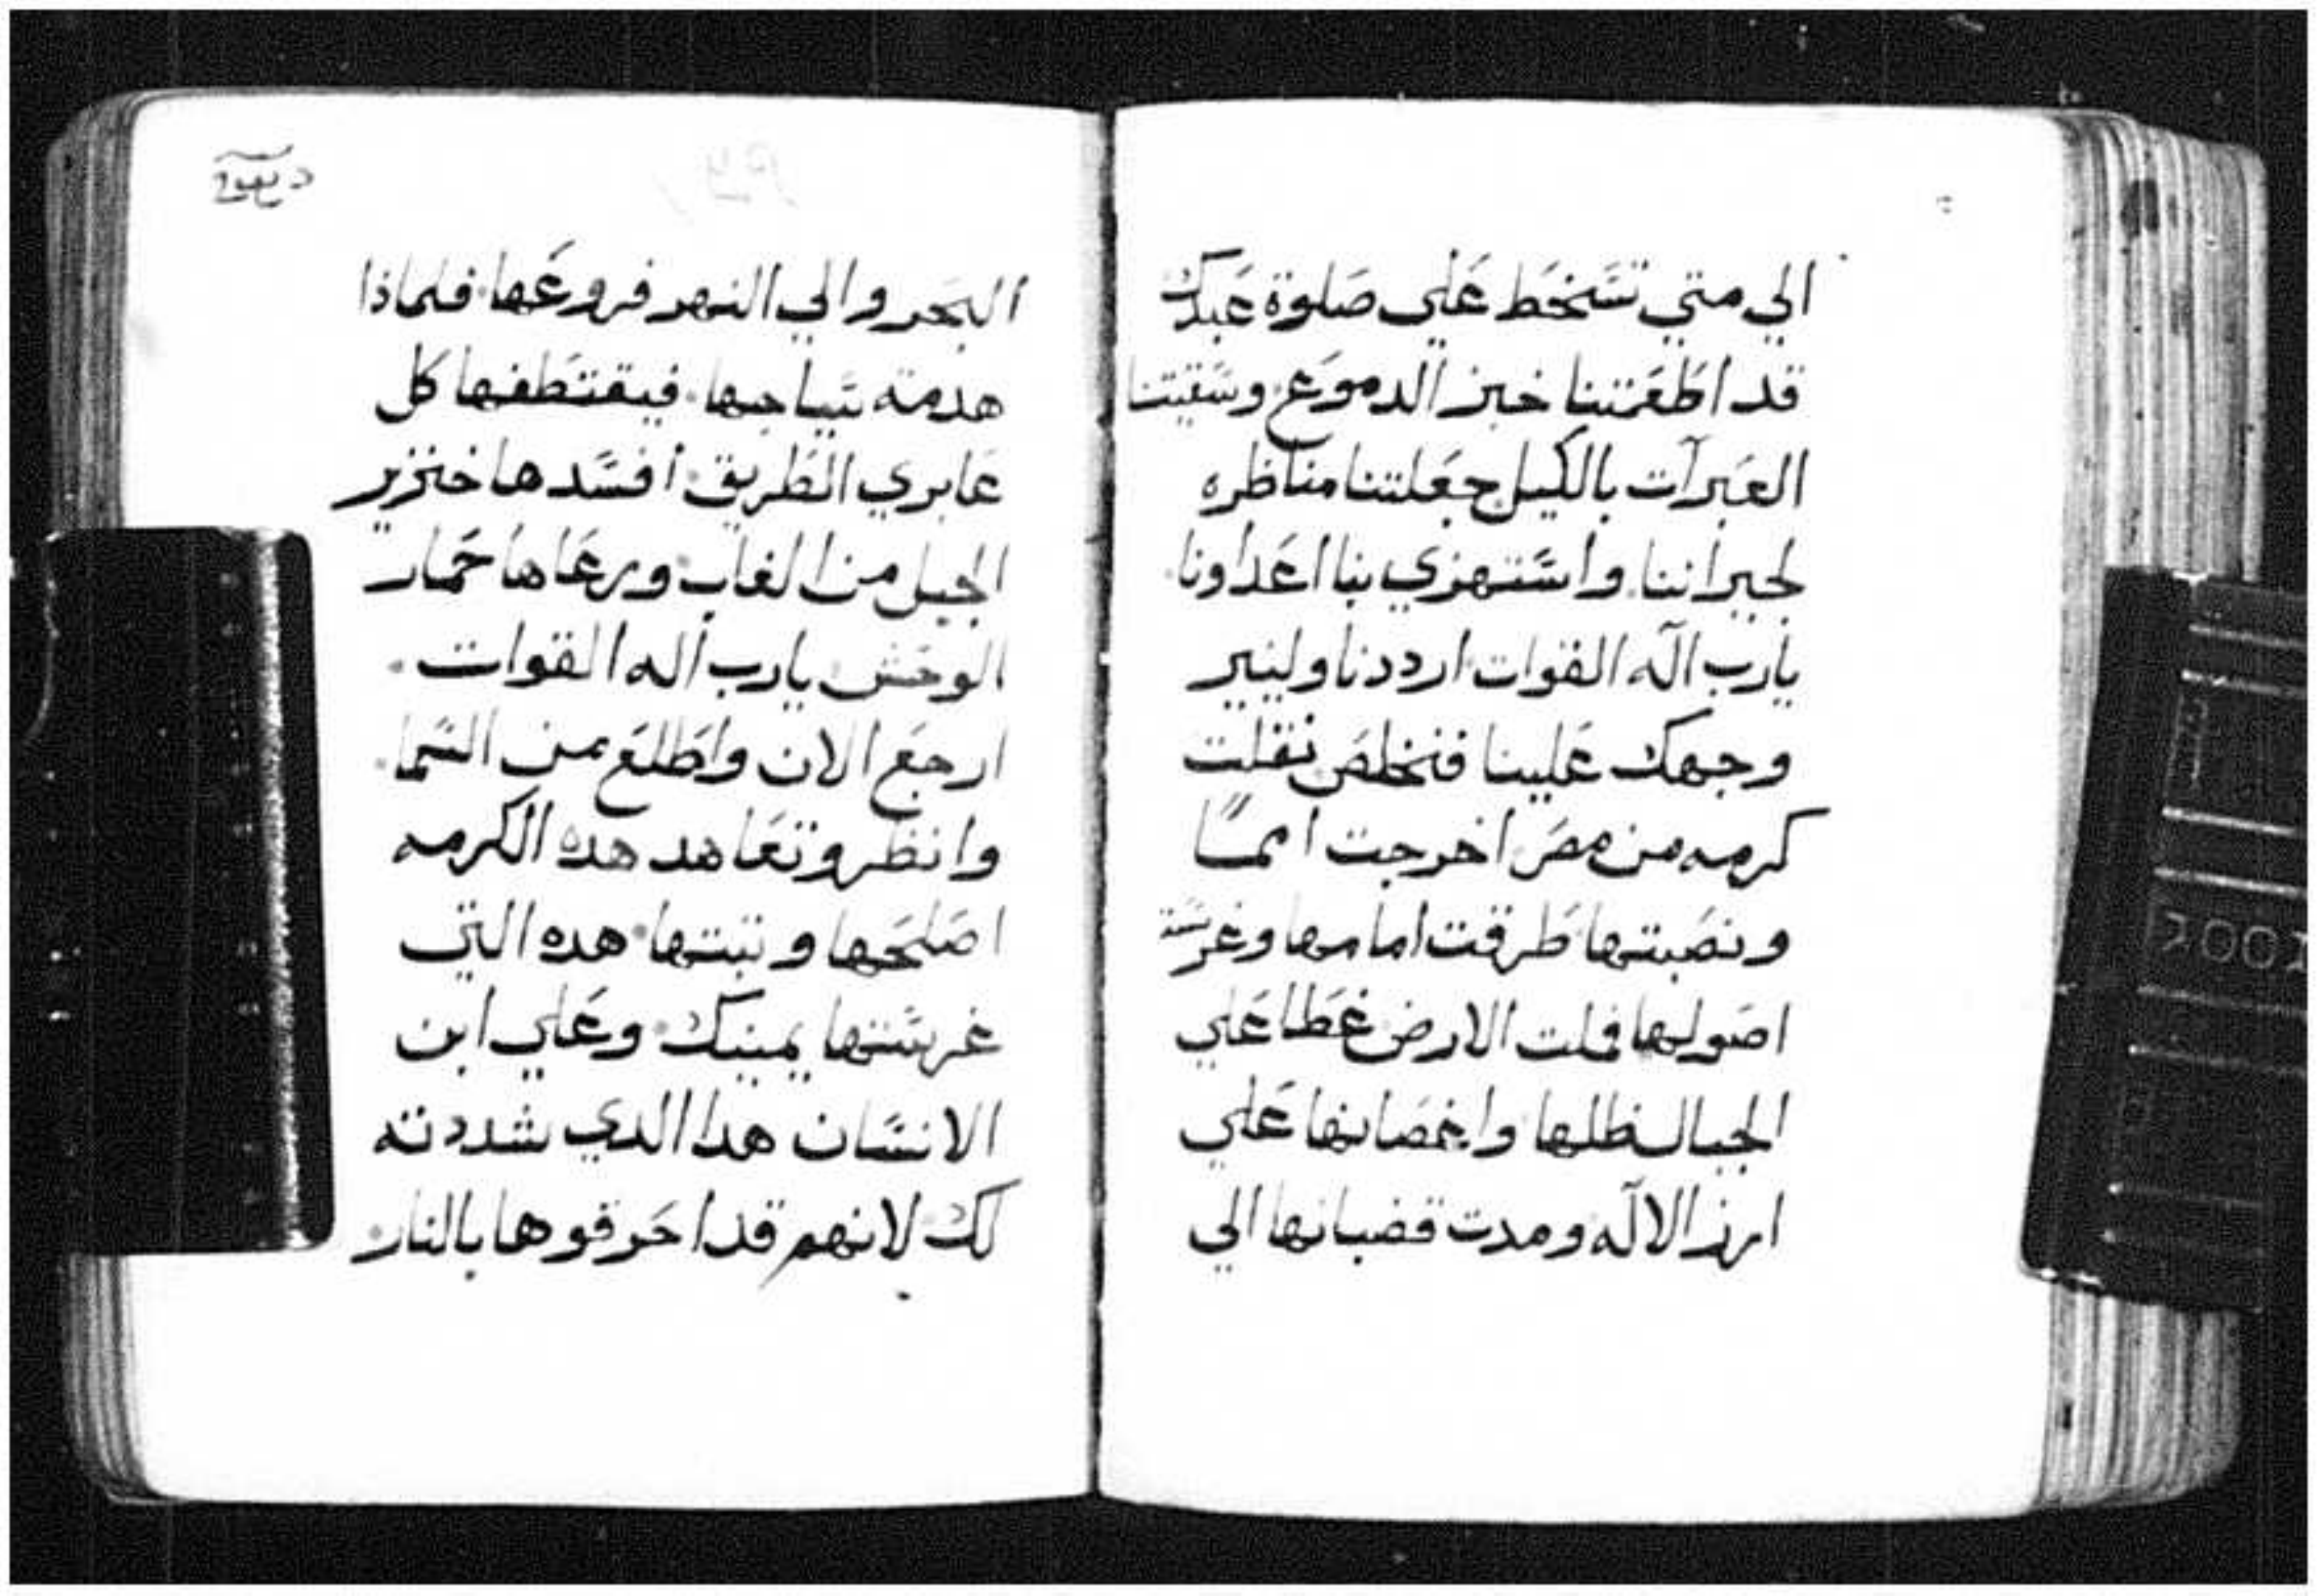 الي متي تسخط علي صلوة عبدك
قد اطعمتنا خبز الدموع وسقيتنا
العبرات بالكيل جعلتنا مناظره
لجيراننا واستهزي بنا اعداونا
يارب اله القوات ارددنا ولينير
وجهك علينا فنخلص نقلت
كرمه من مصر اخرجت امما
ونصبتها طرقت امامها وغرست
اصولها فملت الارض غطا علي
الجبال ظلها واغصانها علي
ارز الاله ومدت قضبانها الي
البحر والي النهر فروعها فلماذا
هدمته سياجها فيقتطفها كل
عابري الطريق افسدها خنزير
الجبل من الغاب ورعاها حمار
الوحش يارب اله القوات
ارجع الان واطلع من السما
وانظر وتعاهد هده الكرمه
اصلحها وثبتها هده التي
غرستها يمينك وعلي ابن
الانسان هدا الدي شددته
لك لانهم قد احرقوها بالنار